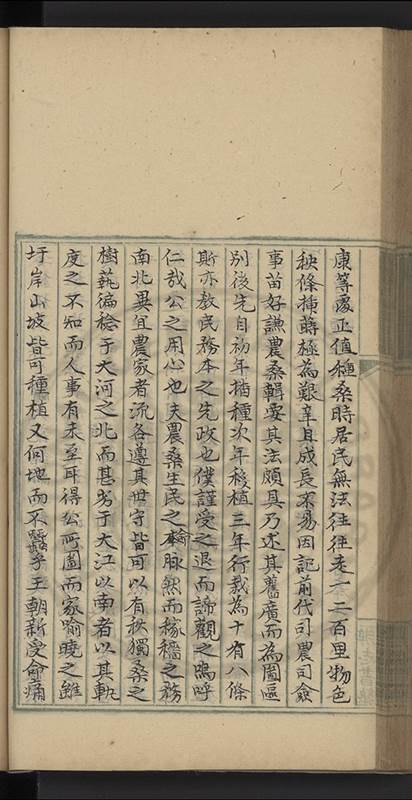 康等處正值種桑時居民無法往往來一二百里物色
秧條插蒔極為艱辛且成長不易因記前代司農司僉
事苗好謙農桑輯要其法頗具乃述其舊廣而為圖區
別後先自初年揩種次年移植三年行栽為十有八條
斯亦教民務本之先政也僕謹受之退而諦觀之嗚呼
仁哉公之用心也夫農桑生民之命脉然而稼穡之務
南北異宜農家者流各遵其世守皆可以有秋獨桑之
樹蓺徧稔于大河之北而甚劣于大江以南者以其軌
度之不知而人事有未至耳得公所圖而家喻曉之雖
圩岸山坡皆可種植又何地而不蠶乎王朝新受命痛